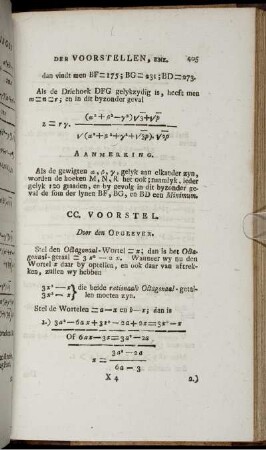 DER VOORSTELLEN, ENZ. 405
dan vindt men BF=175; BG=231; BD=273.
Als de Driehoek DFG gelykzydig is, heeft men
m=n=r; en in dit byzonder geval
AANMERKING.
Als de gewigten α, β, γ, gelyk aan elkander zyn,
worden de hoeken M, N, R het ook; namelyk, ieder
gelyk 120 graaden, en by gevolg in dit byzonder ge-
val de som der lynen BF, BG, en BD een Minimum.
CC. VOORSTEL.
Door den OPGEEVER.
Stel den Octogonaal-Wortel =x; dan is het Octo-
gonaal-getal =3x²−2x. Wanneer wy nu den
Wortel x daar by optellen, en ook daar van aftrek-
ken, zullen wy hebben
3x²−x } die beide rationaale Octogonaal-getal-
3x²−3x } len moeten zyn.
Stel de Wortelen =a−x en b−x; dan is
1.) 3a²−6ax+3x²−2a+2x=3x²−x
Of 6ax−3x=3a²−2a
x= 3a²−2a
6a−3
X 4 2.)